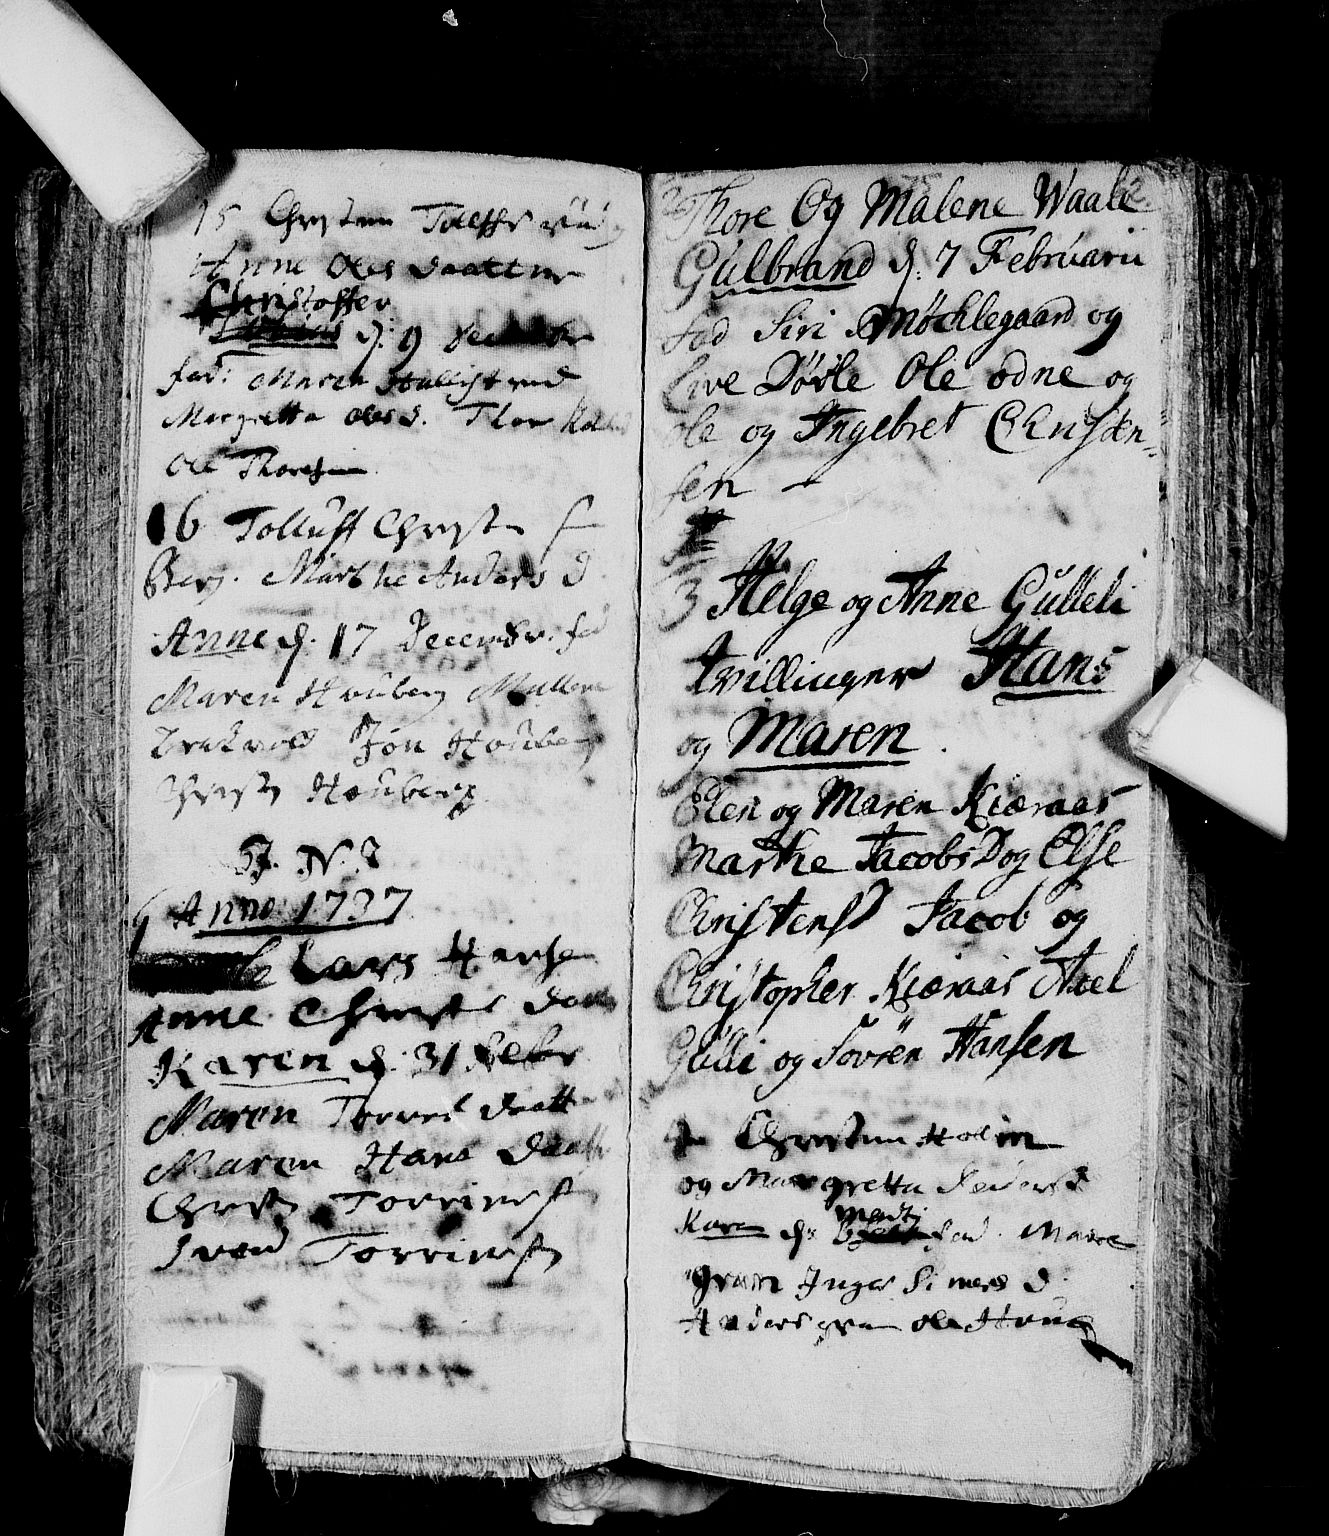 15 Christen Tolfs
Anne Oles daatter
Christoffer
d: 9 December
fad: Maren
Margretta Oles d. Thor
Ole Thoresen
16 Tolluff Christ
Berg. Marthe Anders d.
Anne d. 17 Decembr. fad
Maren Houberg
Jon Houberg
Christ Houberg
J. N. J
Anno 1737
1 Lars Hanse
Anne Christ daatt
Karen d: 31 Febr
Maren Torres daatt
Maren Hans daatt
Christ Torrinsen
Torrinsen
2 Thore Og Malene Waale
Gulbrand d. 7 Februarii
fad Siri Møchlegaard og
Live Døvle Ole odne og
Ole og Ingebret Christen-
sen
3 Helge og Anne Gulleli
tvillinger Hans
og Maren.
Elen og Maren Kiæraas
Marthe JacobsD og Else
ChristensD Jacob og
Christopher Kiæraas Axel
Gulli og Sovren Hansen
Christen Holm
og Margretta Peders d
Kare d: Marti fad. Maree
gram Inger Simens d.
Anders gram Ole Houg